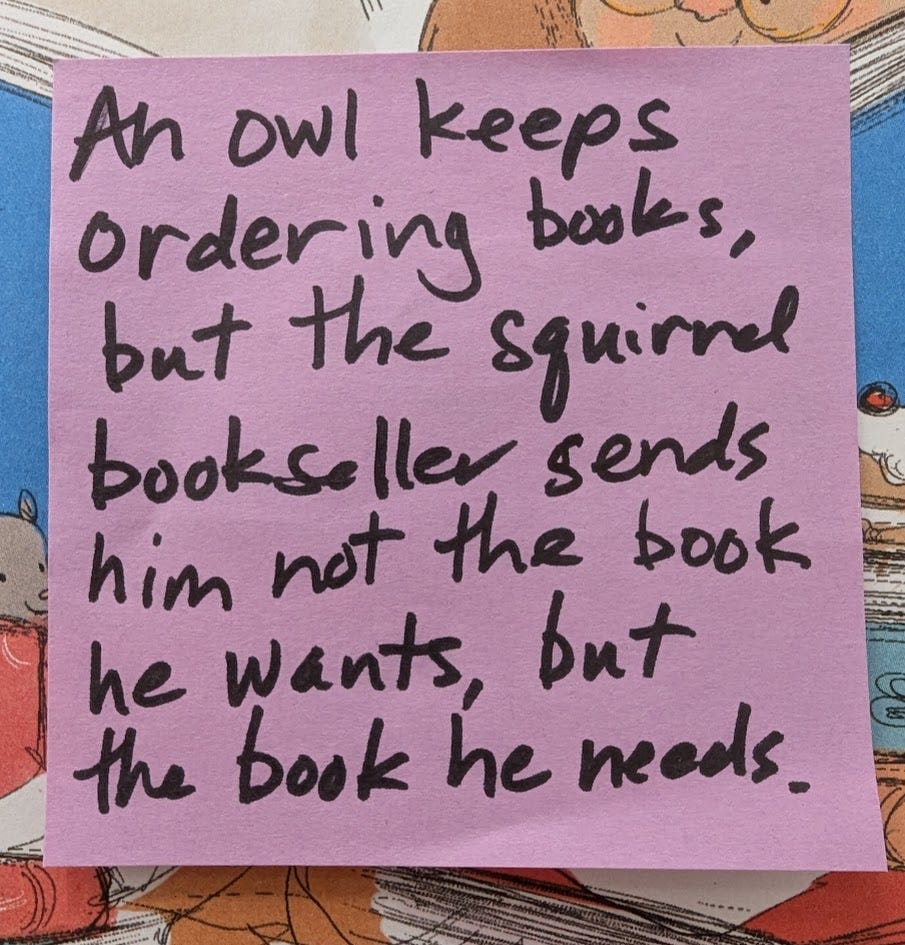 An owl keeps
ordering books,
but the squirrel
bookseller sends
him not the book
he wants, but
the book he needs.